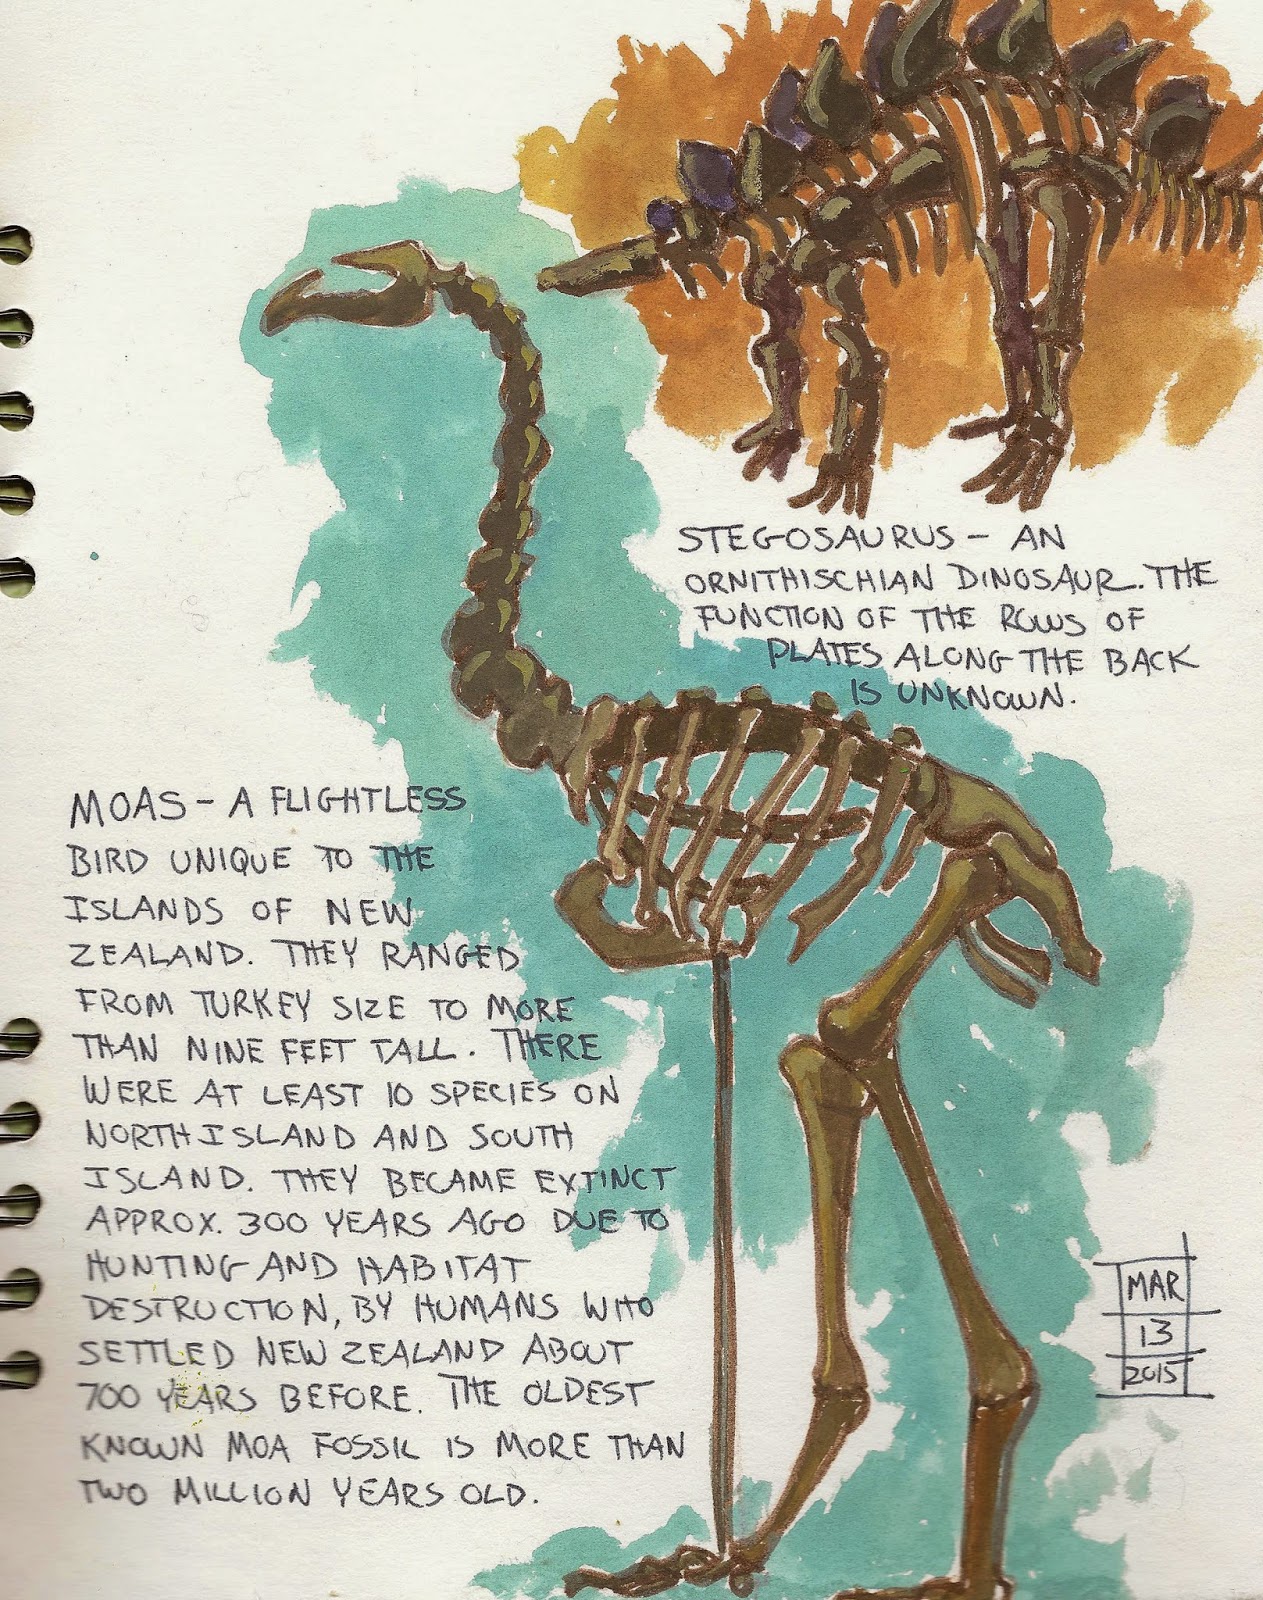 STEGOSAURUS - AN
ORNITHISCHIAN DINOSAUR. THE
FUNCTION OF THE ROWS OF
PLATES ALONG THE BACK
IS UNKNOWN.
MOAS - A FLIGHTLESS
BIRD UNIQUE TO THE
ISLANDS OF NEW
ZEALAND. THEY RANGED
FROM TURKEY SIZE TO MORE
THAN NINE FEET TALL. THERE
WERE AT LEAST 10 SPECIES ON
NORTH ISLAND AND SOUTH
ISLAND. THEY BECAME EXTINCT
APPROX. 300 YEARS AGO DUE TO
HUNTING AND HABITAT
DESTRUCTION, BY HUMANS WHO
SETTLED NEW ZEALAND ABOUT
700 YEARS BEFORE. THE OLDEST
KNOWN MOA FOSSIL IS MORE THAN
TWO MILLION YEARS OLD.
MAR
13
2015